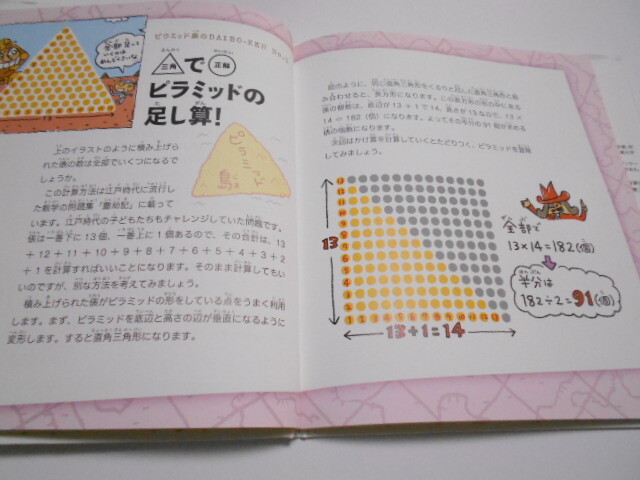 全部足して
ピラミッド島のDAIBO-KEN No.
三角で正解
ピラミッドの
足し算!
ピラミッド
島
上のイラストのように積み上げら
れた俵の数は全部でいくつになるで
しょうか。
この計算方法は江戸時代に流行し
た数学の問題集「塵劫記」に載って
います。江戸時代の子どもたちもチャレンジしていた問題です。
俵は一番下に13個、一番上に1個あるので、その合計は、13
+12+11+10+9+8+7+6+5+4+3+2
+1を計算すればいいことになります。そのまま計算してもい
いのですが、別な方法を考えてみましょう。
積み上げられた俵がピラミッドの形をしている点をうまく利用
します。まず、ピラミッドを底辺と高さの辺が垂直になるように
変形します。すると直角三角形になります。
図のように、同じ直角三角形をくるりと回した直角三角形と組
み合わせると、長方形になります。この長方形の形の中にある
俵の個数は、底辺が13+1で14、高さが13なので、13×
14=182(個)になります。よってその半分の91個が求める
俵の個数になります。
次回はかけ算を計算していくとたどりつく、ピラミッドを冒険
してみましょう。
13
12
11
10
9
8
7
6
5
4
3
2
1
13
1 2 3 4 5 6 7 8 9 10 11 12 13
13+1=14
全部で
13×14=182(個)
半分は
182÷2=91(個)